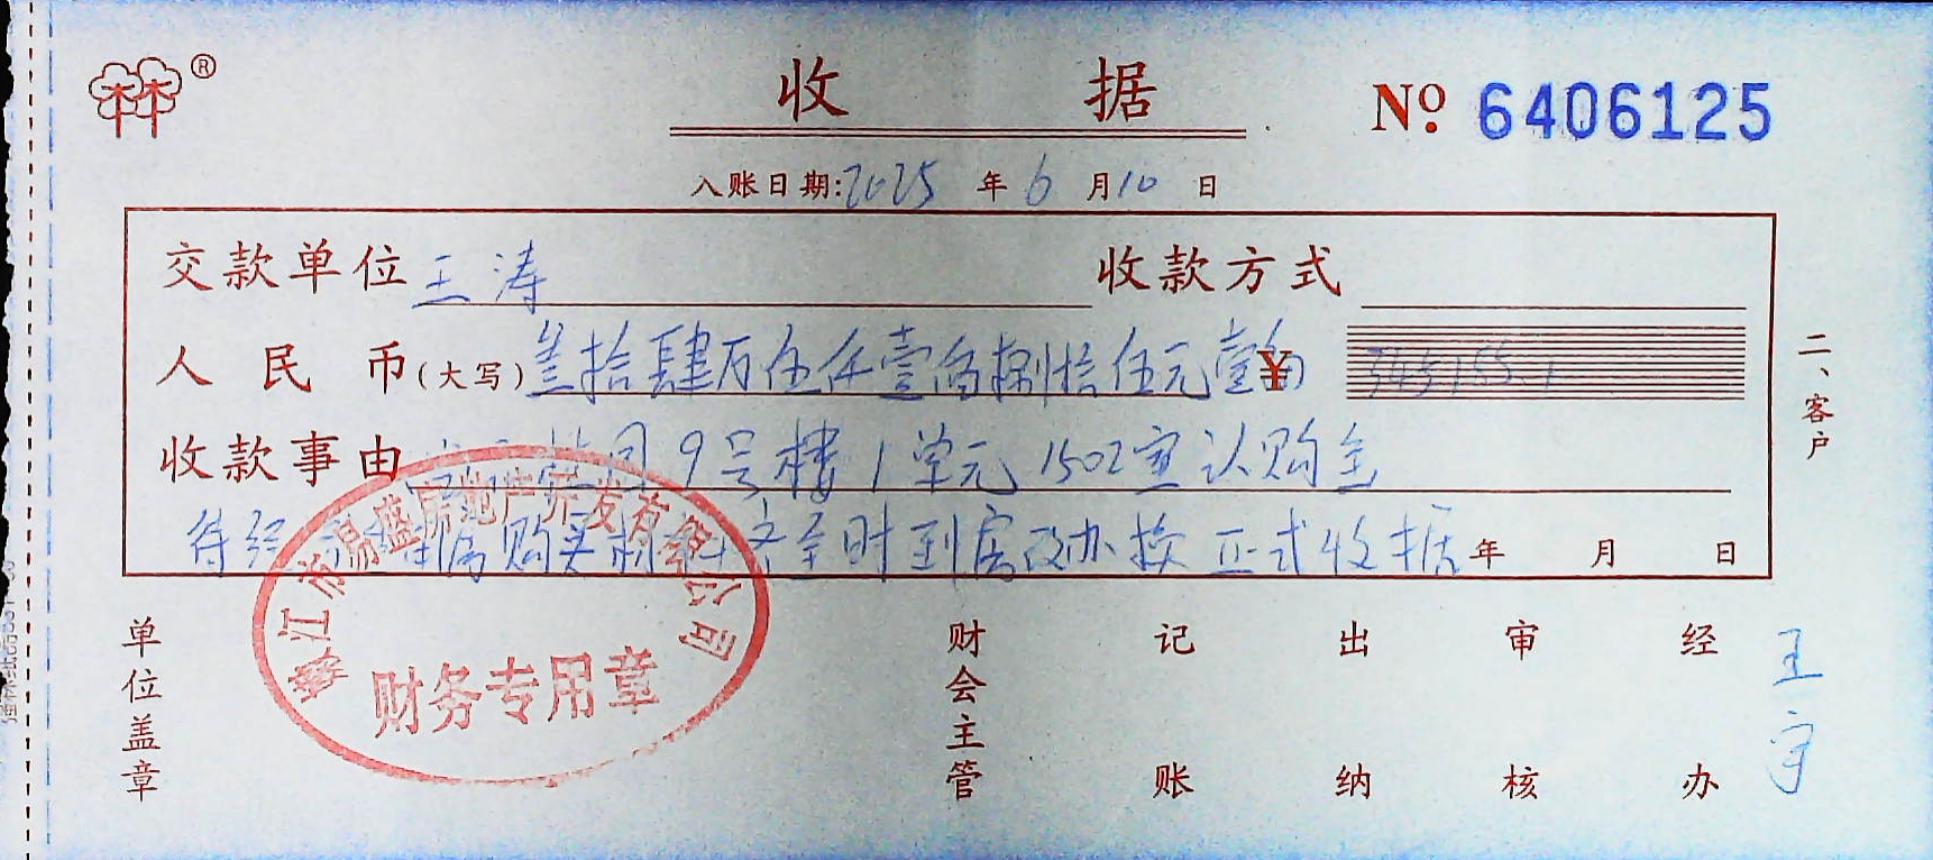 ®
收 据
№ 6406125
入账日期:2025 年 6 月 10 日
交款单位 王涛 收款方式
人民币(大写) 叁拾肆万伍仟壹佰捌拾伍元壹角 ¥
收款事由 同9号楼1单元1502室认购金
待 购买 齐全时到房改办换正式收据 年 月 日
二、客户
市易盛房地产开发有限公司
财务专用章
单位盖章 财会主管 记账 出纳 审核 经办 王宇